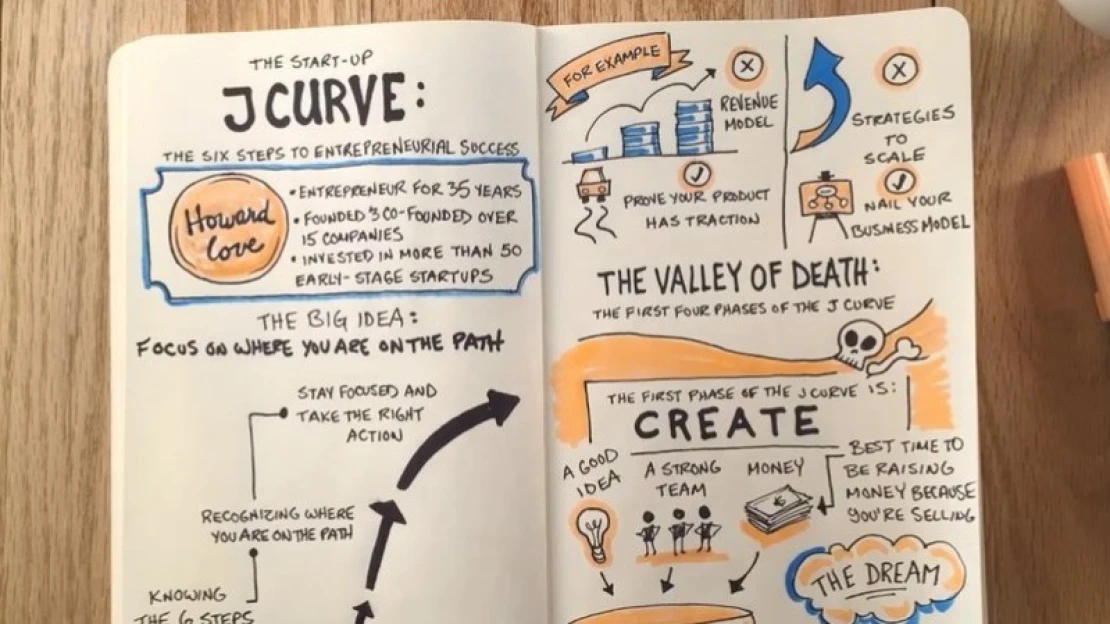 THE START-UP
J CURVE:
THE SIX STEPS TO ENTREPRENEURIAL SUCCESS
Howard
Love
• ENTREPRENEUR FOR 35 YEARS
• FOUNDED & CO-FOUNDED OVER
15 COMPANIES
• INVESTED IN MORE THAN 50
EARLY-STAGE STARTUPS
THE BIG IDEA:
FOCUS ON WHERE YOU ARE ON THE PATH
STAY FOCUSED AND
TAKE THE RIGHT
ACTION
RECOGNIZING WHERE
YOU ARE ON THE PATH
KNOWING
THE 6 STEPS
FOR EXAMPLE
X
REVENUE
MODEL
PROVE YOUR PRODUCT
HAS TRACTION
X
STRATEGIES
TO
SCALE
NAIL YOUR
BUSINESS MODEL
THE VALLEY OF DEATH:
THE FIRST FOUR PHASES OF THE J CURVE
THE FIRST PHASE OF THE J CURVE IS:
CREATE
A GOOD
IDEA
A STRONG
TEAM
MONEY
BEST TIME TO
BE RAISING
MONEY BECAUSE
YOU'RE SELLING
THE DREAM